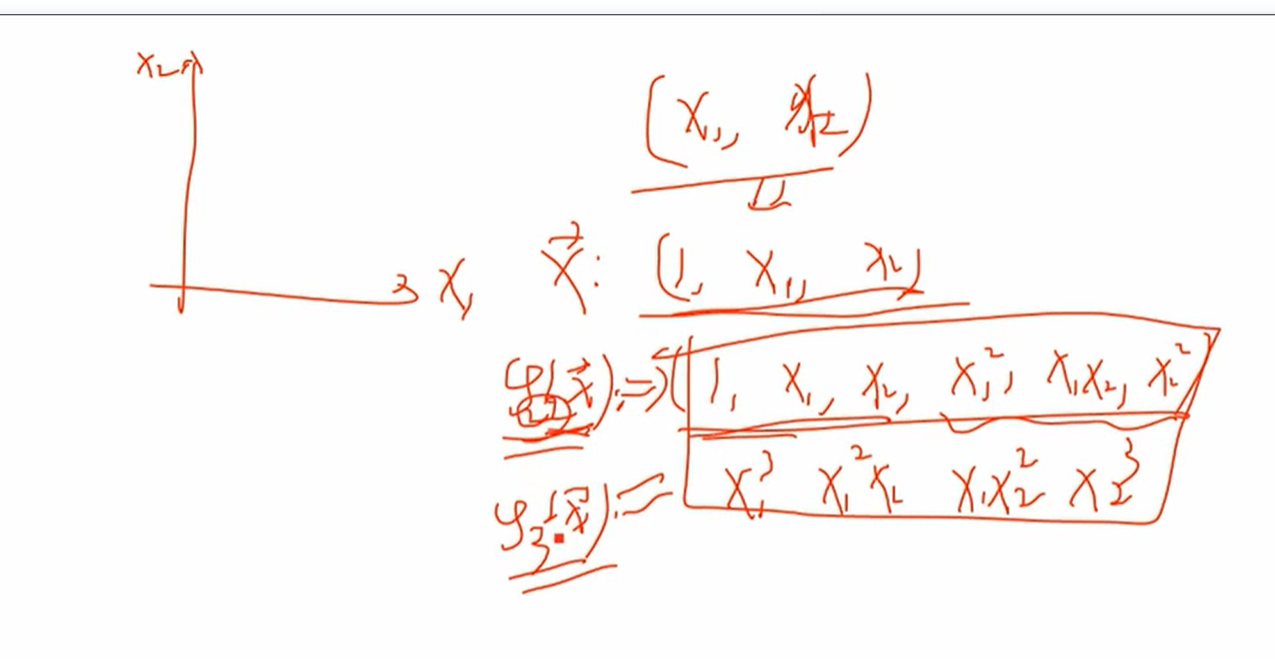 x₂
(x₁, x₂)
x₁
x⃗: (1, x₁, x₂)
φ₂(x⃗): ⇒ (1, x₁, x₂, x₁², x₁x₂, x₂²)
φ₃(x⃗): = x₁³ x₁²x₂ x₁x₂² x₂³